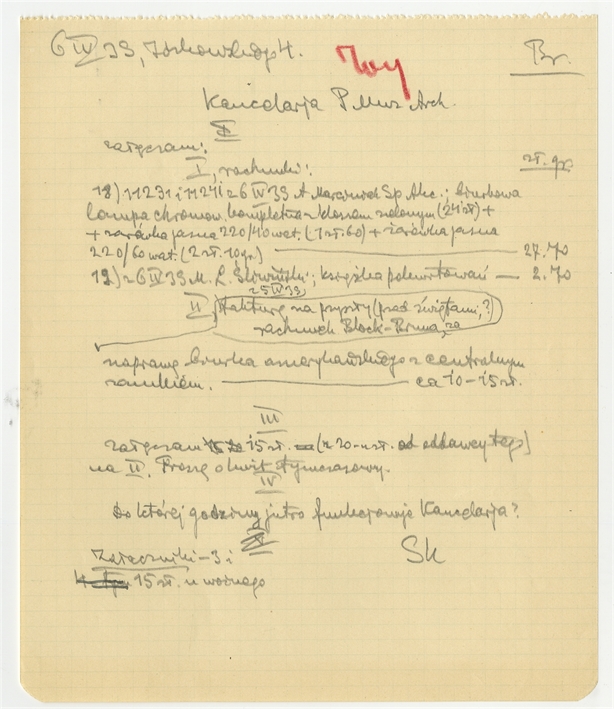 6 IV 33, 4.
Br.
Kancelarja P. Muz. Arch.
I
załączam:
I, rachunki: zł. gr
18) 11231 i 11241 z 6 IV 33 A Marciniak Sp. Akc.; biurkowa
lampa chromow. kompletna z kloszem zielonym (24 zł) +
+ żarówka jasna 220/40 wat. (1 zł. 60) + żarówka jasna
220/60 wat. (2 zł. 10 gr.) — 27.70
19) z 6 IV 33 M. L. Śliwiński; książka pokwitowań — 2.70
25 IV 33,
II fakturę na przyszły (przed świętami,?)
rachunek Block-Bruna, za
naprawę biurka amerykańskiego z centralnym
zamkiem. — ca 10–15 zł.
III
załączam 15 zł. (z 20-zł. od oddawcy tego)
na II. Proszę o kwit tymczasowy.
IV
Do której godziny jutro funkcjonuje Kancelarja?
Sk
Załączniki – 3 i
15 zł. u woźnego